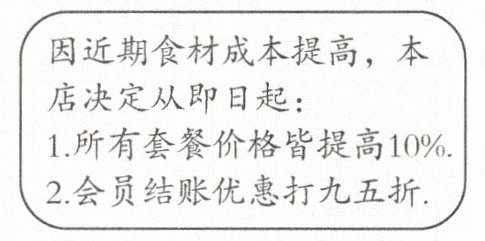 因近期食材成本提高，本
店决定从即日起：
1.所有套餐价格皆提高10%.
2.会员结账优惠打九五折.